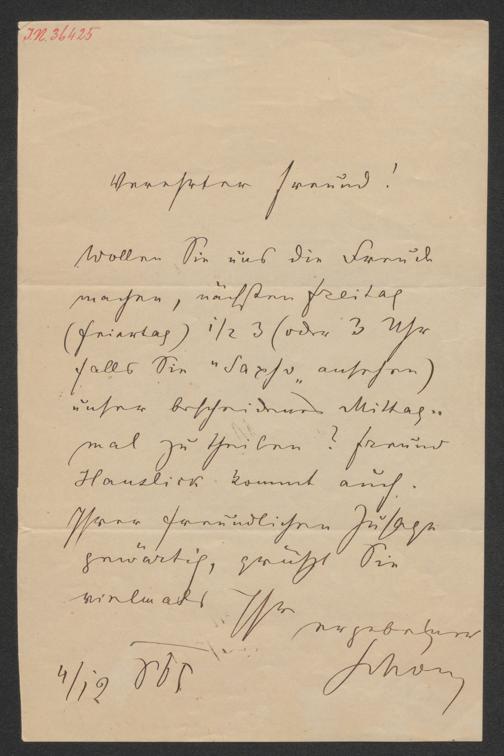 I.N. 36425
Verehrter Freund!
Wollen Sie uns die Freude
machen, nächsten Freitag
(Feiertag) 1/2 3 (oder 3 Uhr
falls Sie "Sapho" ansehen)
unser bescheidenes Mittag-
mal zu theilen? Freund
Hanslick kommt auch.
Ihrer freundlichen Zusage
gewärtig, grüßt Sie
vielmals Ihr
ergebener
4/12